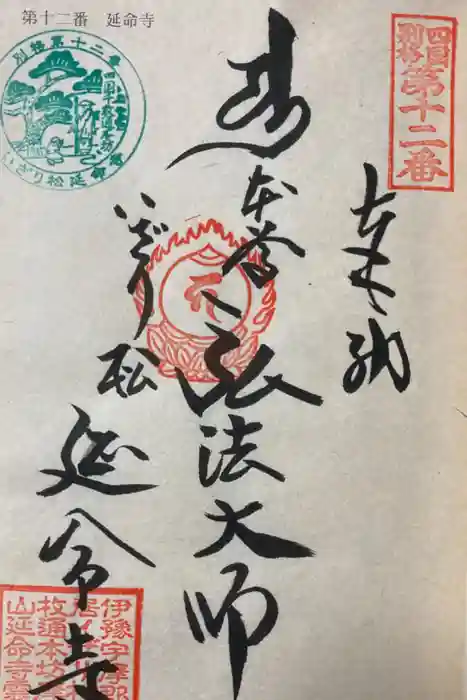 第十二番 延命寺
四国
別格
第十二番
奉納
本尊
弘法大師
いざり松
延命寺
別格第十二番
いざり松延命寺
伊豫宇摩郡
山延命寺